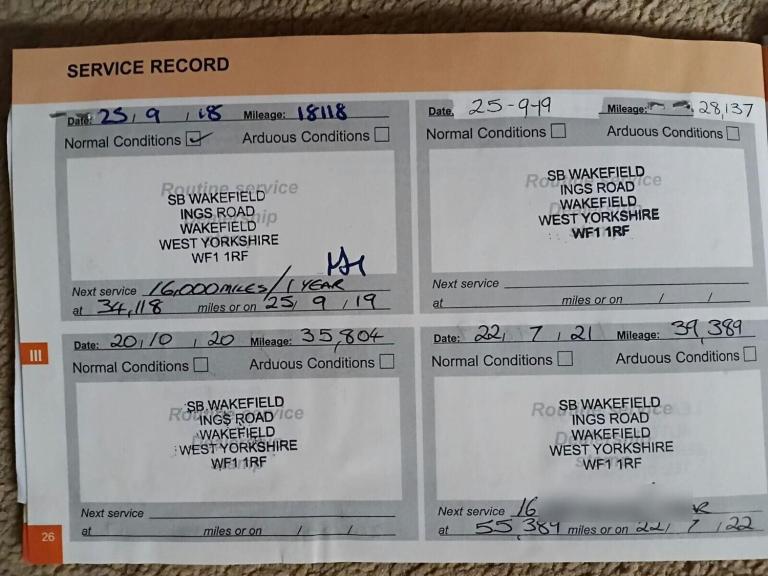 SERVICE RECORD
Date: 25 / 9 / 18 Mileage: 18118
Normal Conditions Arduous Conditions
Routine service
SB WAKEFIELD
INGS ROAD
WAKEFIELD
WEST YORKSHIRE
WF1 1RF
Next service 16,000 MILES / 1 YEAR
at 34,118 miles or on 25 / 9 / 19
Date: 25-9-19 Mileage: 28,137
Normal Conditions Arduous Conditions
SB WAKEFIELD
INGS ROAD
WAKEFIELD
WEST YORKSHIRE
WF1 1RF
Next service
at miles or on / /
III
Date: 20 / 10 / 20 Mileage: 35,804
Normal Conditions Arduous Conditions
Routine service
SB WAKEFIELD
INGS ROAD
WAKEFIELD
WEST YORKSHIRE
WF1 1RF
Next service
at miles or on / /
Date: 22 / 7 / 21 Mileage: 39,389
Normal Conditions Arduous Conditions
Routine service
SB WAKEFIELD
INGS ROAD
WAKEFIELD
WEST YORKSHIRE
WF1 1RF
Next service 16 R
at 55,389 miles or on 22 / 7 / 22
26